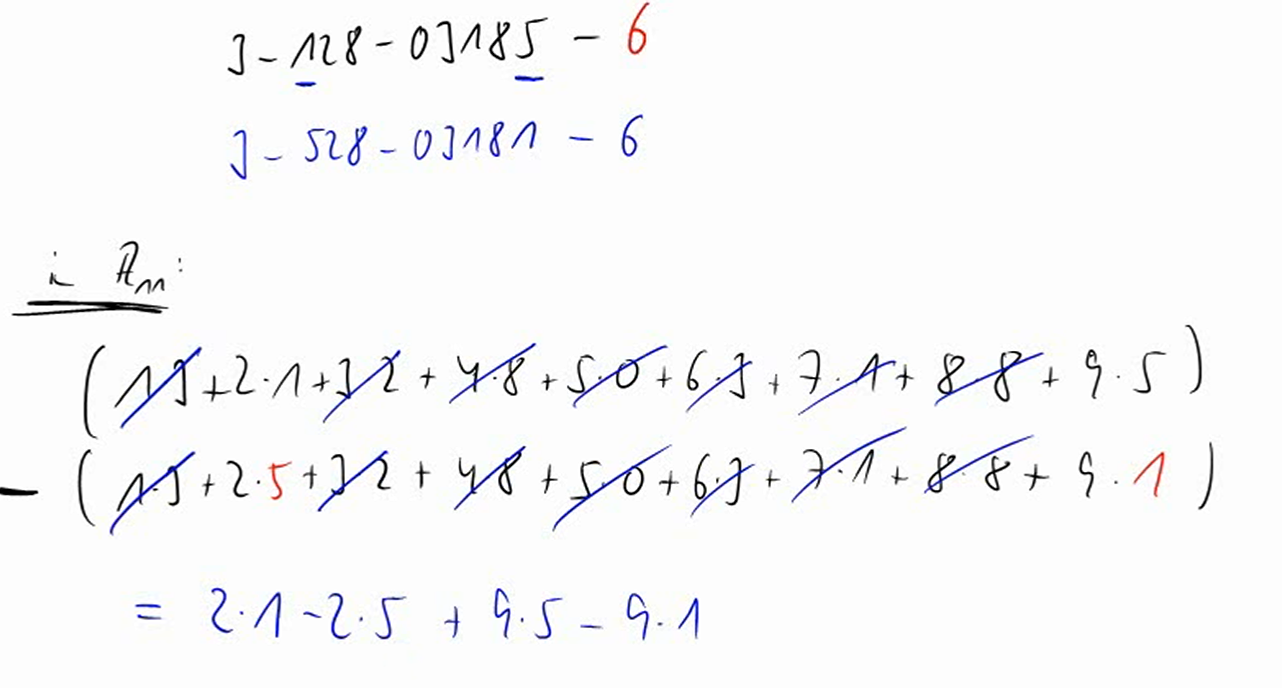 3 - 128 - 03185 - 6
3 - 528 - 03181 - 6
in ℤ₁₁:
(1·3 + 2·1 + 3·2 + 4·8 + 5·0 + 6·3 + 7·1 + 8·8 + 9·5)
- (1·3 + 2·5 + 3·2 + 4·8 + 5·0 + 6·3 + 7·1 + 8·8 + 9·1)
= 2·1 - 2·5 + 9·5 - 9·1